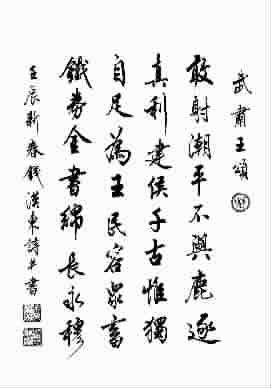 武肅王頌
敢射潮平不與鹿逐
真利建侯千古惟獨
自足為王民容眾畜
鐵券金書綿長永穆
壬辰新春錢漢東詩并書